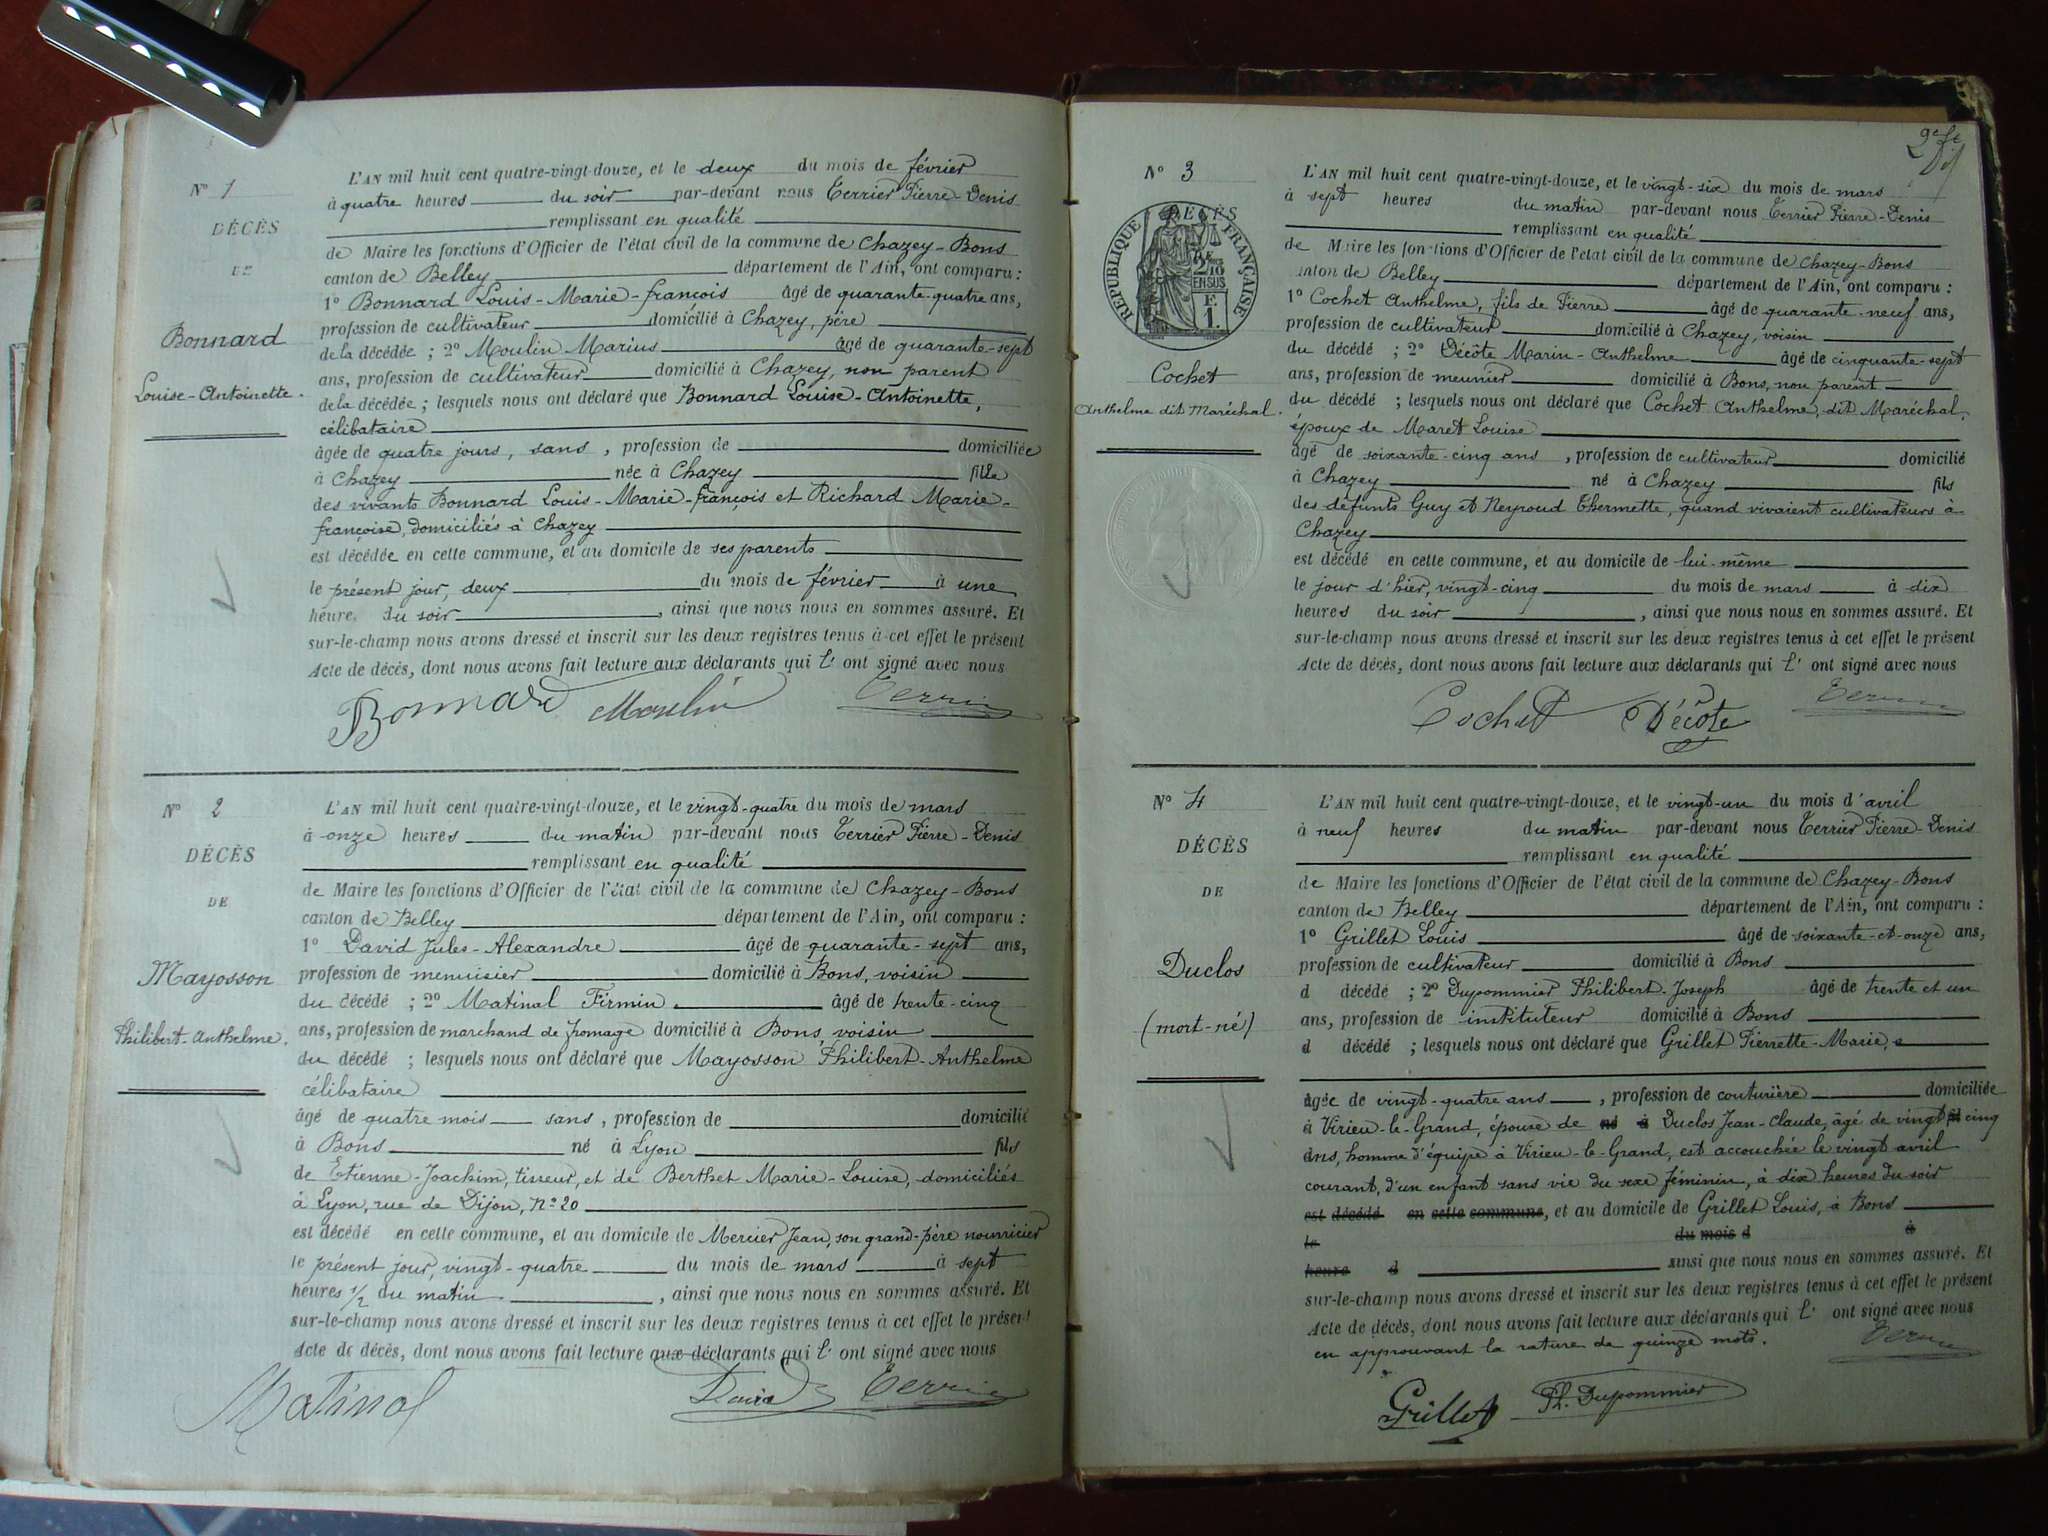 N° 1
DÉCÈS
DE
Bonnard
Louise-Antoinette.
L'AN mil huit cent quatre-vingt-douze, et le deux du mois de février
à quatre heures du soir par-devant nous Terrier Pierre-Denis
remplissant en qualité
de Maire les fonctions d'Officier de l'état civil de la commune de Chazey-Bons
canton de Belley département de l'Ain, ont comparu :
1° Bonnard Louis-Marie-françois âgé de quarante-quatre ans,
profession de cultivateur domicilié à Chazey, père
de la décédée ; 2° Moulin Marius âgé de quarante-sept
ans, profession de cultivateur domicilié à Chazey, non parent
de la décédée ; lesquels nous ont déclaré que Bonnard Louise-Antoinette,
célibataire
âgée de quatre jours, sans, profession de domiciliée
à Chazey née à Chazey fille
des vivants Bonnard Louis-Marie-françois et Richard Marie-
françoise, domiciliés à Chazey
est décédée en cette commune, et au domicile de ses parents
le présent jour, deux du mois de février à une
heure du soir, ainsi que nous nous en sommes assuré. Et
sur-le-champ nous avons dressé et inscrit sur les deux registres tenus à cet effet le présent
Acte de décès, dont nous avons fait lecture aux déclarants qui l' ont signé avec nous
Bonnard Moulin Terrier
N° 2
DÉCÈS
DE
Mayosson
Philibert-Anthelme.
L'AN mil huit cent quatre-vingt-douze, et le vingt-quatre du mois de mars
à onze heures du matin par-devant nous Terrier Pierre-Denis
remplissant en qualité
de Maire les fonctions d'Officier de l'état civil de la commune de Chazey-Bons
canton de Belley département de l'Ain, ont comparu :
1° David Jules-Alexandre âgé de quarante-sept ans,
profession de menuisier domicilié à Bons, voisin
du décédé ; 2° Matinal Firmin âgé de trente-cinq
ans, profession de marchand de fromage domicilié à Bons, voisin
du décédé ; lesquels nous ont déclaré que Mayosson Philibert-Anthelme
célibataire
âgé de quatre mois sans, profession de domicilié
à Bons né à Lyon fils
de Etienne-Joachim, tisseur, et de Berthet Marie-Louise, domiciliés
à Lyon, rue de Dijon, N° 20
est décédé en cette commune, et au domicile de Mercier Jean, son grand-père nourricier
le présent jour, vingt-quatre du mois de mars à sept
heures 1/2 du matin, ainsi que nous nous en sommes assuré. Et
sur-le-champ nous avons dressé et inscrit sur les deux registres tenus à cet effet le présent
Acte de décès, dont nous avons fait lecture aux déclarants qui l' ont signé avec nous
Matinal David Terrier
2e
N° 3
DÉCÈS
RÉPUBLIQUE FRANÇAISE
2/10
EN SUS
F.
1.
Cochet
Anthelme dit Maréchal.
L'AN mil huit cent quatre-vingt-douze, et le vingt-six du mois de mars
à sept heures du matin par-devant nous Terrier Pierre-Denis
remplissant en qualité
de Maire les fonctions d'Officier de l'état civil de la commune de Chazey-Bons
canton de Belley département de l'Ain, ont comparu :
1° Cochet Anthelme, fils de Pierre âgé de quarante-neuf ans,
profession de cultivateur domicilié à Chazey, voisin
du décédé ; 2° Décôte Marin-Anthelme âgé de cinquante-sept
ans, profession de meunier domicilié à Bons, non parent
du décédé ; lesquels nous ont déclaré que Cochet Anthelme, dit Maréchal,
époux de Maret Louise
âgé de soixante-cinq ans, profession de cultivateur domicilié
à Chazey né à Chazey fils
des défunts Guy et Neyroud Thermette, quand vivaient cultivateurs à
Chazey
est décédé en cette commune, et au domicile de lui-même
le jour d'hier, vingt-cinq du mois de mars à dix
heures du soir, ainsi que nous nous en sommes assuré. Et
sur-le-champ nous avons dressé et inscrit sur les deux registres tenus à cet effet le présent
Acte de décès, dont nous avons fait lecture aux déclarants qui l' ont signé avec nous
Cochet Décôte Terrier
N° 4
DÉCÈS
DE
Duclos
(mort-né)
L'AN mil huit cent quatre-vingt-douze, et le vingt-un du mois d'avril
à neuf heures du matin par-devant nous Terrier Pierre-Denis
remplissant en qualité
de Maire les fonctions d'Officier de l'état civil de la commune de Chazey-Bons
canton de Belley département de l'Ain, ont comparu :
1° Grillet Louis âgé de soixante-et-onze ans,
profession de cultivateur domicilié à Bons
d décédé ; 2° Dupommier Philibert-Joseph âgé de trente et un
ans, profession de instituteur domicilié à Bons
d décédé ; lesquels nous ont déclaré que Grillet Pierrette-Marie,
âgée de vingt-quatre ans, profession de couturière domiciliée
à Virieu-le-Grand, épouse de né à Duclos Jean-Claude, âgé de vingt cinq
ans, homme d'équipe à Virieu-le-Grand, est accouchée le vingt avril
courant, d'un enfant sans vie du sexe féminin, à dix heures du soir
est décédé en cette commune, et au domicile de Grillet Louis, à Bons
le du mois d à
heure d ainsi que nous nous en sommes assuré. Et
sur-le-champ nous avons dressé et inscrit sur les deux registres tenus à cet effet le présent
Acte de décès, dont nous avons fait lecture aux déclarants qui l' ont signé avec nous
en approuvant la rature de quinze mots. Terrier
Grillet Ph. Dupommier